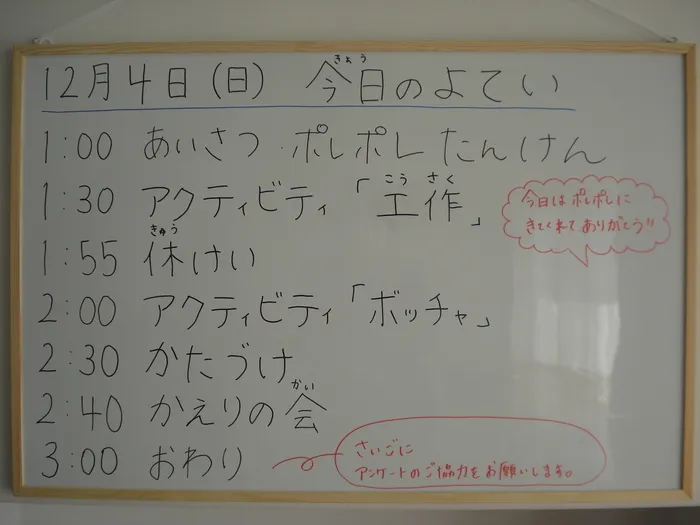 12月4日(日) 今日のよてい
きょう
1:00 あいさつ・ポレポレたんけん
1:30 アクティビティ「工作」
こう さく
1:55 休けい
きゅう
2:00 アクティビティ「ボッチャ」
2:30 かたづけ
2:40 かえりの会
かい
3:00 おわり
今日はポレポレに
きてくれてありがとう!!
さいごに
アンケートのご協力をお願いします。